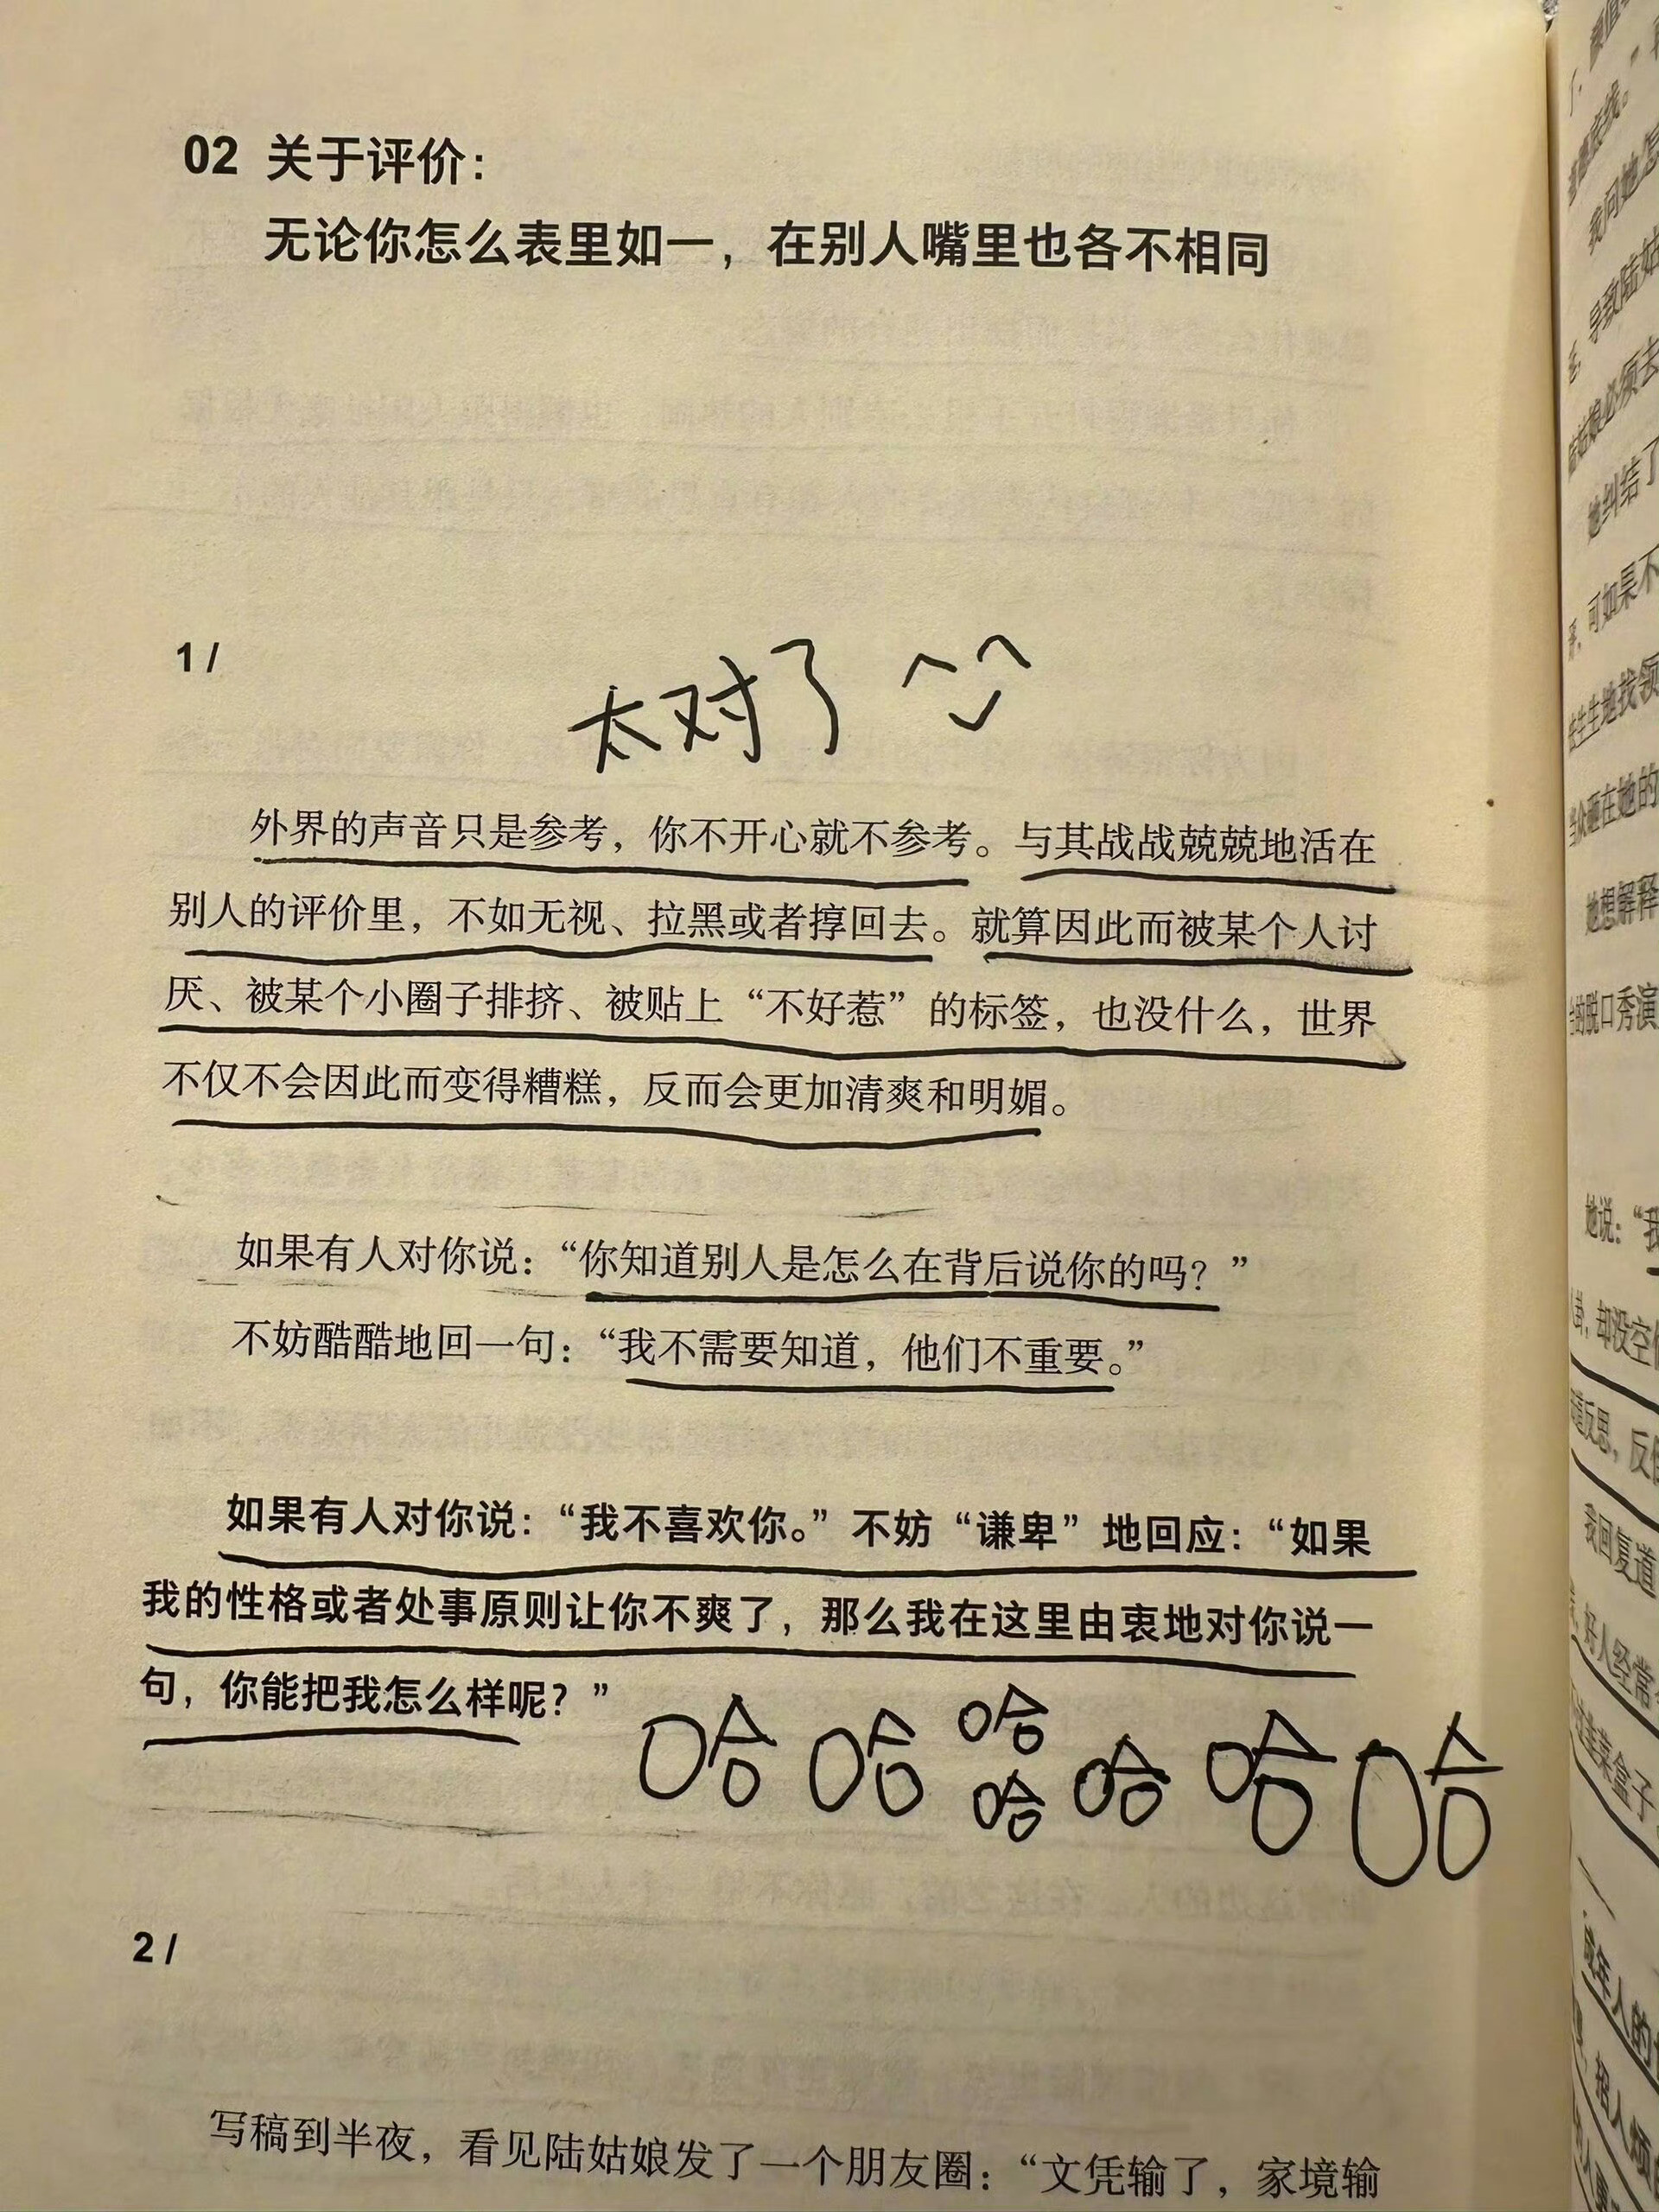 02 关于评价：
无论你怎么表里如一，在别人嘴里也各不相同
1 /
太对了
外界的声音只是参考，你不开心就不参考。与其战战兢兢地活在
别人的评价里，不如无视、拉黑或者撑回去。就算因此而被某个人讨
厌、被某个小圈子排挤、被贴上“不好惹”的标签，也没什么，世界
不仅不会因此而变得糟糕，反而会更加清爽和明媚。
如果有人对你说：“你知道别人是怎么在背后说你的吗？”
不妨酷酷地回一句：“我不需要知道，他们不重要。”
如果有人对你说：“我不喜欢你。”不妨“谦卑”地回应：“如果
我的性格或者处事原则让你不爽了，那么我在这里由衷地对你说一
句，你能把我怎么样呢？”
哈哈哈哈哈哈哈
2 /
写稿到半夜，看见陆姑娘发了一个朋友圈：“文凭输了，家境输
我问她怎
导致陆姑
陆姑娘必须去
她纠结了
可如果不
生生地找领
当众砸在她的
她想解释
的脱口秀演
她说：“我
卦，却没空
反思，反
我回复道
好人经常